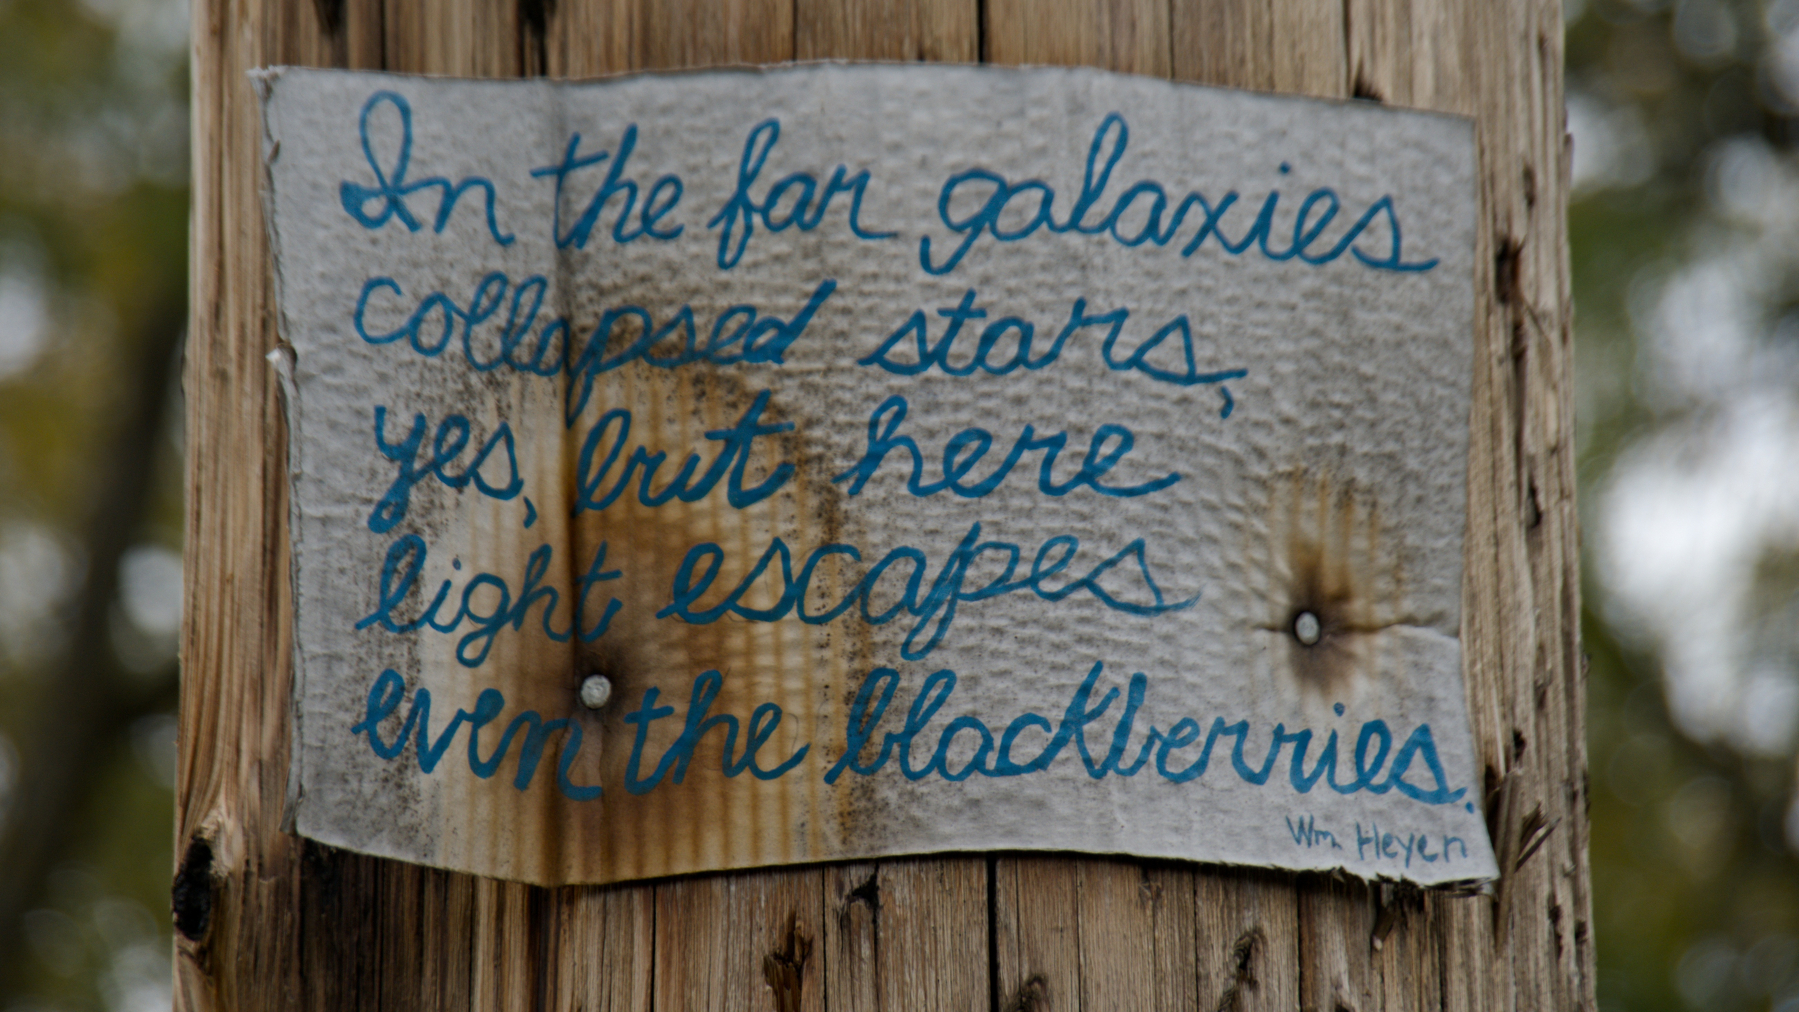 In the far galaxies
collapsed stars,
yes, but here
light escapes
even the blackberries.
Wm Heyen